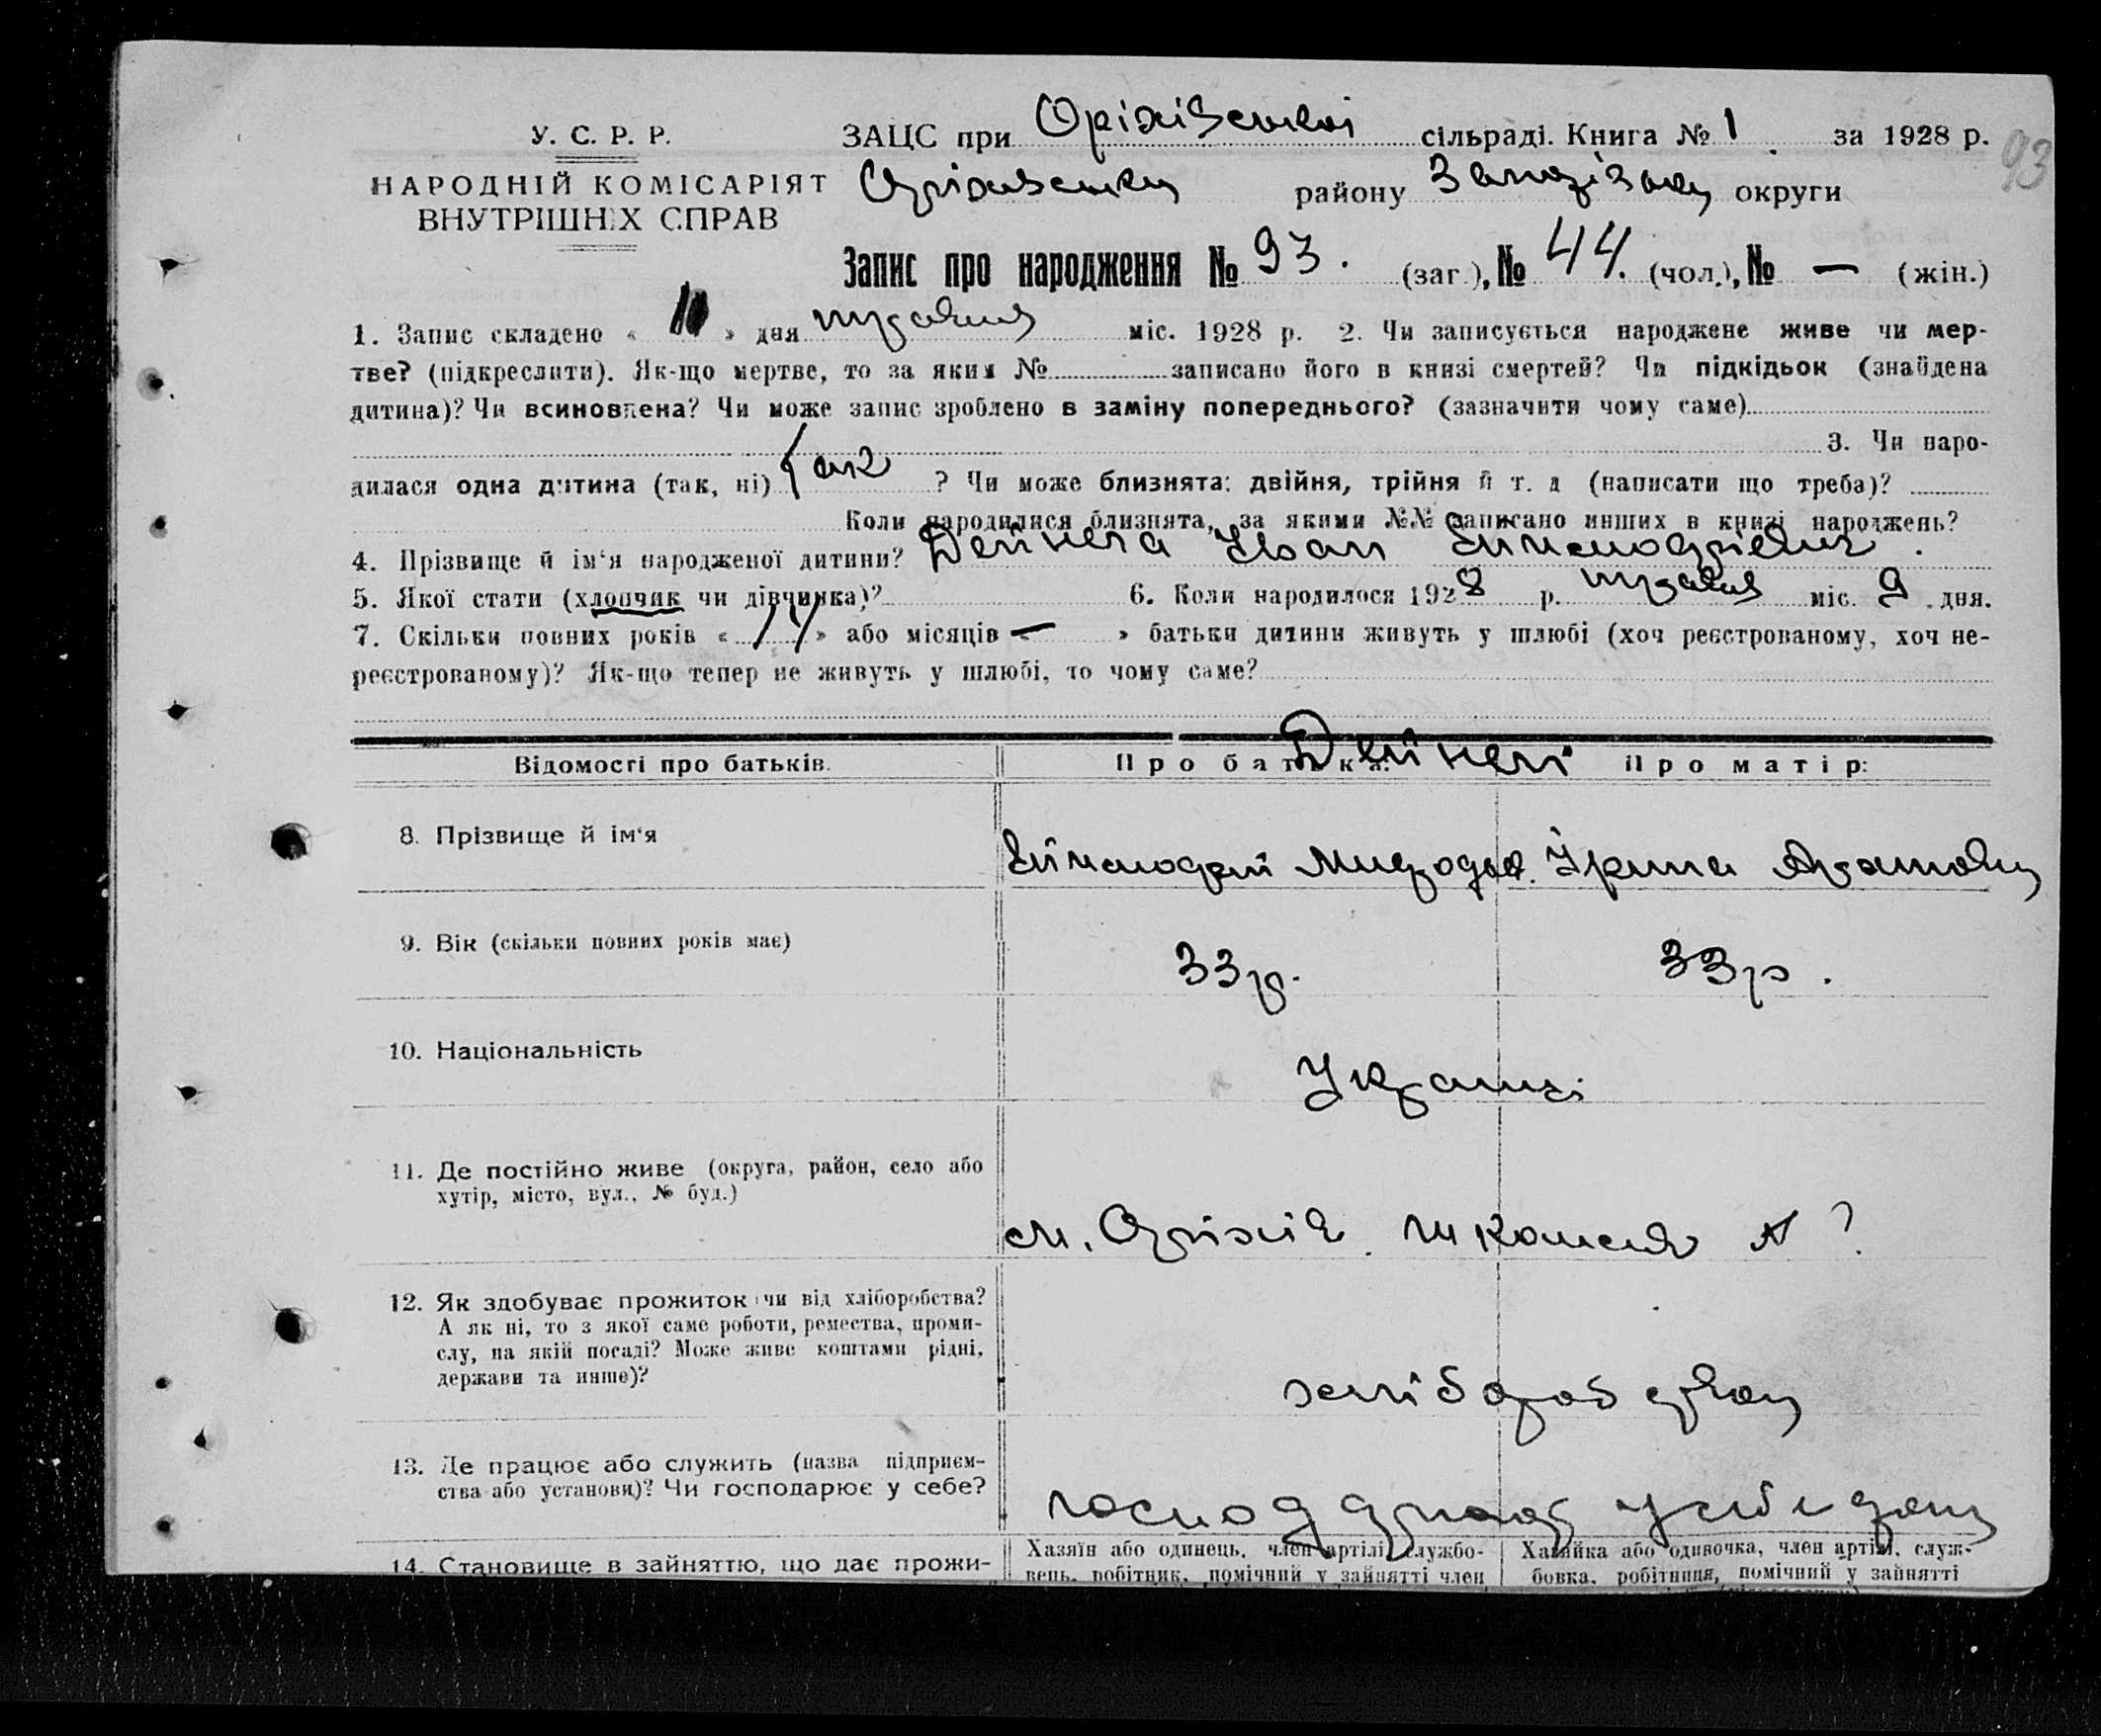 У. С. Р. Р.
НАРОДНІЙ КОМІСАРІЯТ
ВНУТРІШНІХ СПРАВ
93
ЗАЦС при Оріхівській сільраді. Книга № 1 за 1928 р.
Оріхівськ району Запоріжж округи
Запис про народження № 93. (заг.), № 44. (чол.), № — (жін.)
1. Запис складено « » дня травня міс. 1928 р. 2. Чи записується народжене живе чи мер-
тве? (підкреслити). Як-що мертве, то за яким № записано його в книзі смертей? Чи підкідьок (знайдена
дитина)? Чи всиновлена? Чи може запис зроблено в заміну попереднього? (зазначити чому саме)
3. Чи наро-
дилася одна дитина (так, ні) так ? Чи може близнята: двійня, трійня й т. д (написати що треба)?
Коли народилися близнята, за якими №№ записано инших в книзі народжень?
4. Прізвище й ім‘я народженої дитини? Дейнега Іван
5. Якої стати (хлопчик чи дівчинка)? 6. Коли народилося 1928 р. травня міс. 9 дня.
7. Скільки повних років « 14 » або місяців « — » батьки дитини живуть у шлюбі (хоч реєстрованому, хоч не-
реєстрованому)? Як-що тепер не живуть у шлюбі, то чому саме?
Відомості про батьків. Про батька: Дейнеги Про матір:
8. Прізвище й ім‘я Ірина
9. Вік (скільки повних років має) 33 р. 33 р.
10. Національність Українці
11. Де постійно живе (округа, район, село або
хутір, місто, вул., № буд.) м. Оріхів. ?
12. Як здобуває прожиток чи від хліборобства?
А як ні, то з якої саме роботи, ремества, проми-
слу, на якій посаді? Може живе коштами рідні,
держави та инше)?
хліборобством
13. Де працює або служить (назва підприєм-
ства або установи)? Чи господарює у себе?
14. Становище в зайняттю, що дає прожи-
Хазяїн або одинець, член артілі, службо-
вець, робітник, помічний у зайнятті член
Хазяйка або одиночка, член артілі, служ-
бовка, робітниця, помічний у зайнятті